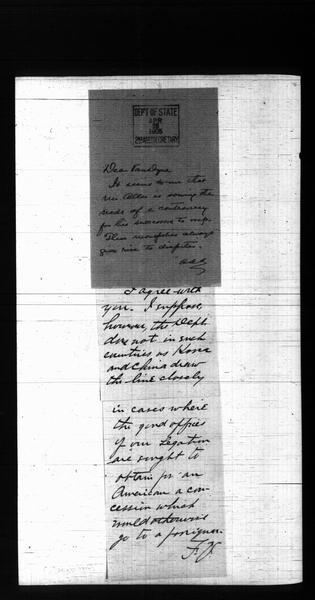 DEPT OF STATE
APR
1905
2nd ASST SECRETARY
Dear VanDyne
It seems to me that
Mr Allen is sowing the
seeds of a controversy
for his successor to reap.
These monopolies always
give rise to disputes.
A.A.A.
I agree with
you. I suppose,
however, the Dept.
does not in such
countries as Korea
and China draw
the line closely
in cases where
the good offices
of our Legation
are sought to
obtain for an
American a con-
cession which
would otherwise
go to a foreigner.
F.V.